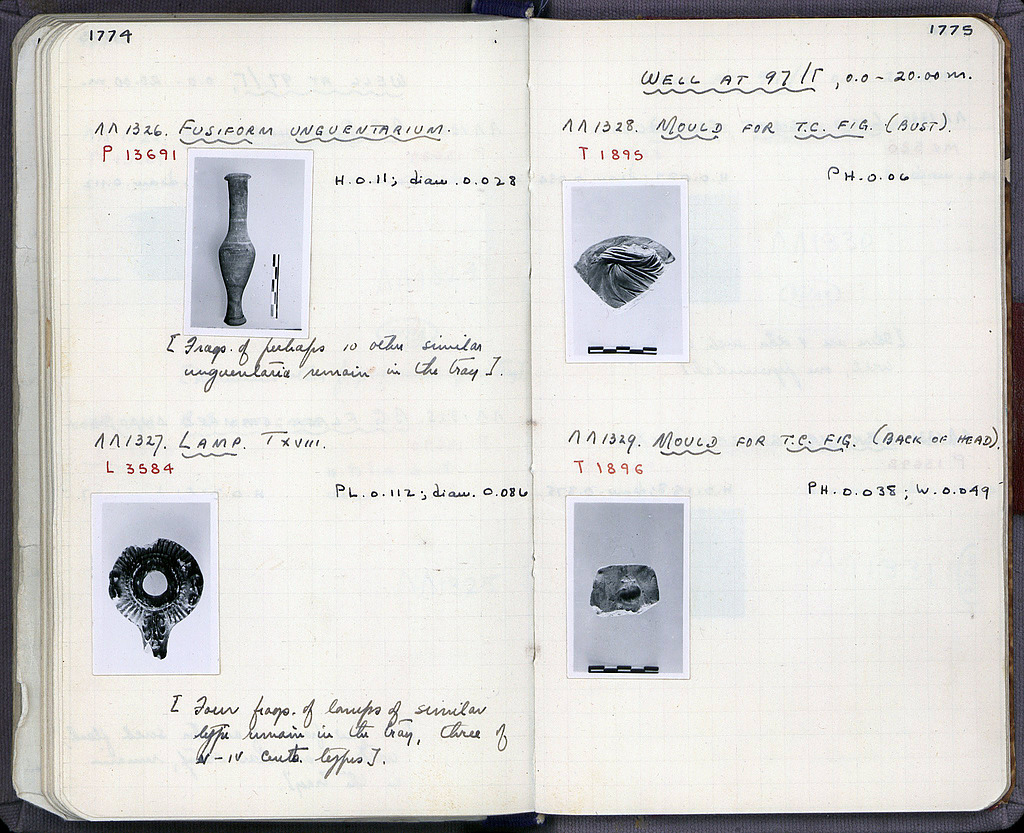 1774
ΛΛ1326. FUSIFORM UNGUENTARIUM.
P 13691
H.0.11; diam. 0.028
[Frags. of perhaps 10 other similar
unguentaria remain in the tray].
ΛΛ1327. LAMP. T XVIII.
L 3584
PL.0.112; diam. 0.086
[Four frags. of lamps of similar
type remain in the tray, three of
V-IV cents. types].
1775
WELL AT 97/Γ, 0.0-20.00 m.
ΛΛ1328. MOULD FOR T.C. FIG. (BUST).
T 1895
PH.0.06
ΛΛ1329. MOULD FOR T.C. FIG. (BACK OF HEAD).
T 1896
PH.0.038; W.0.049